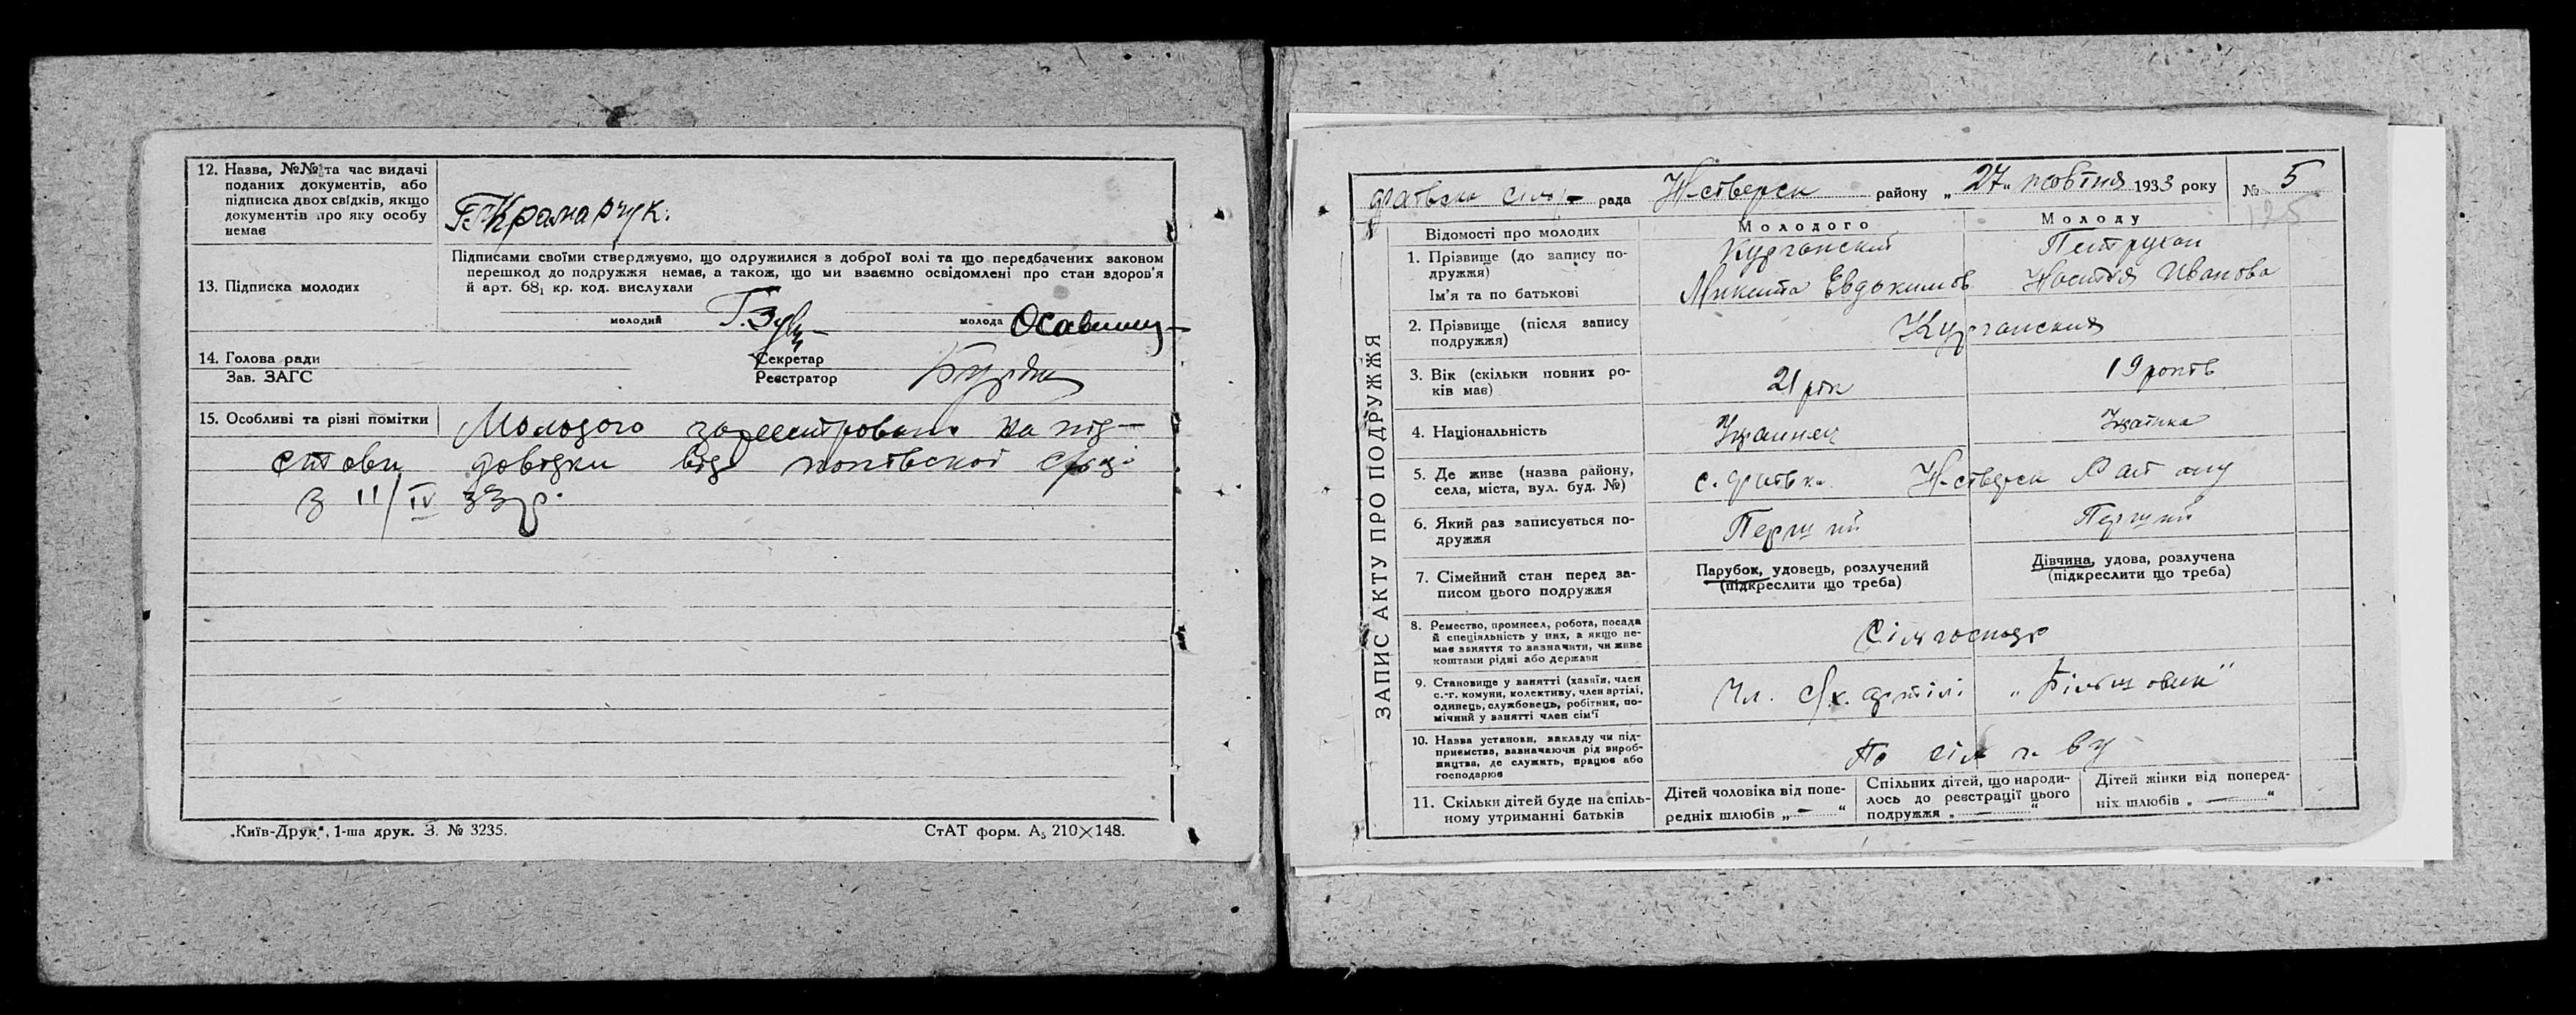 12. Назва, №№ та час видачі
поданих документів, або
підписка двох свідків, якщо
документів про яку особу
немає
Г. Крамарчук.
13. Підписка молодих
Підписами своїми стверджуємо, що одружилися з доброї волі та що передбачених законом
перешкод до подружжя немає, а також, що ми взаємно освідомлені про стан здоров'я
й арт. 68₁ кр. код. вислухали
молодий
молода
14. Голова ради
Секретар
Зав. ЗАГС
Реєстратор
15. Особливі та різні помітки
Молодого зареєстровано на під-
стави довідки від
З 11/IV 33 р.
„Київ-Друк", 1-ша друк. З. № 3235.
СтАТ форм. А₅ 210×148.
ЗАПИС АКТУ ПРО ПОДРУЖЖЯ
рада
району „27" жовтня 1933 року
№ 5
125
Відомості про молодих
Молодого
Молоду
1. Прізвище (до запису по-
дружжя)
Курганский
Петрухан
Ім'я та по батькові
Микита Евдокимов
Настя Иванова
2. Прізвище (після запису
подружжя)
Курганския
3. Вік (скільки повних ро-
ків має)
21 рік
19 років
4. Національність
5. Де живе (назва району,
села, міста, вул. буд. №)
с.
6. Який раз записується по-
дружжя
Перший
Перший
7. Сімейний стан перед за-
писом цього подружжя
Парубок, удовець, розлучений
(підкреслити що треба)
Дівчина, удова, розлучена
(підкреслити що треба)
8. Ремество, промисел, робота, посада
й спеціяльність у них, а якщо не-
має заняття то зазначити, чи живе
коштами рідні або держави
Сільгоспод
9. Становище у занятті (хазяїн, член
с.-г. комуни, колективу, член артілі,
одинець, службовець, робітник, по-
мічний у занятті член сім'ї
Чл. с/х. артілі „Більшовик"
10. Назва установи, закладу чи під-
приємства, зазначаючи рід вироб-
ництва, де служить, працює або
господарює
11. Скільки дітей буде на спіль-
ному утриманні батьків
Дітей чоловіка від попе-
редніх шлюбів „ — "
Спільних дітей, що народи-
лось до реєстрації цього
подружжя „ — "
Дітей жінки від поперед-
ніх шлюбів „ — "